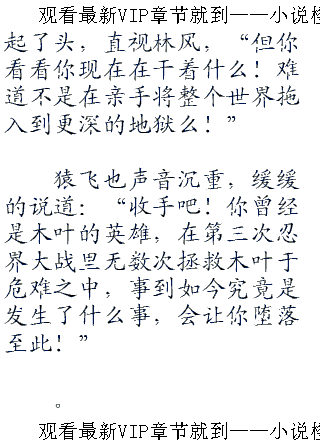 观看最新VIP章节就到——小说
起了头，直视林风，“但你
看看你现在在干着什么！难
道不是在亲手将整个世界拖
入到更深的地狱么！”
猿飞也声音沉重，缓缓
的说道：“收手吧！你曾经
是木叶的英雄，在第三次忍
界大战里无数次拯救木叶于
危难之中，事到如今究竟是
发生了什么事，会让你堕落
至此！”
。
观看最新VIP章节就到——小说